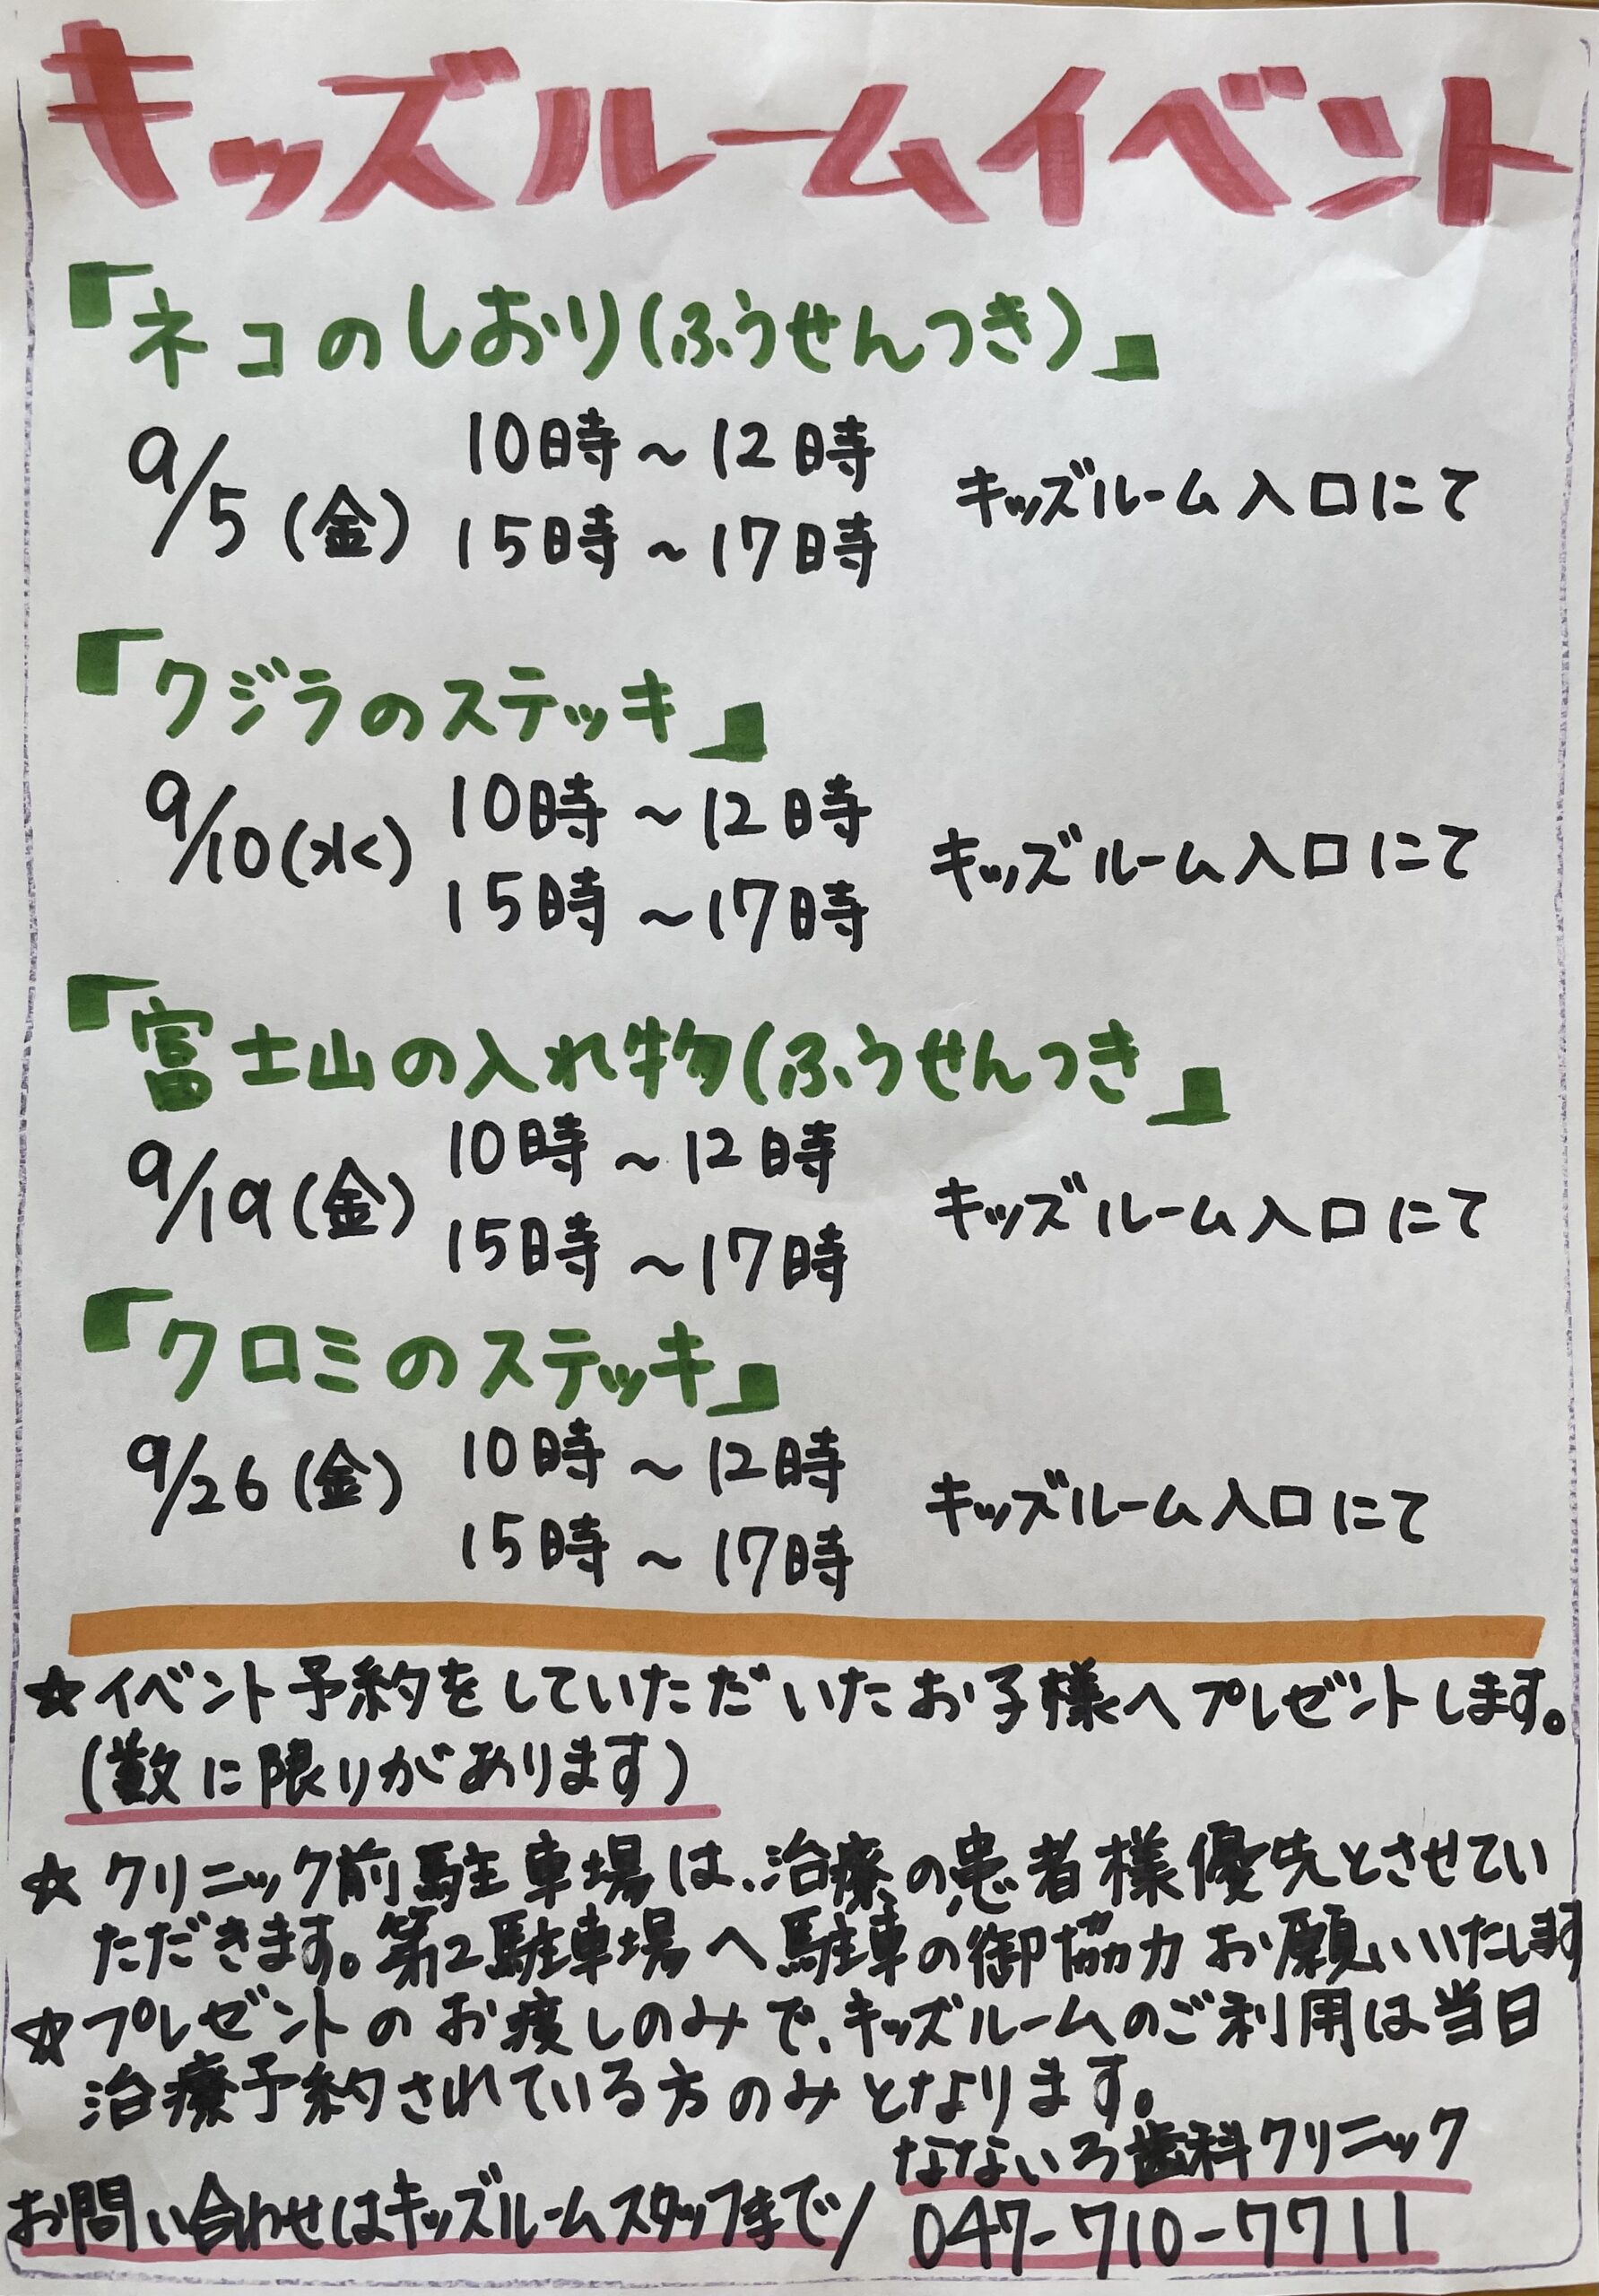 キッズルームイベント
『ネコのしおり(ふうせんつき)』
9/5(金) 10時～12時 キッズルーム入口にて
15時～17時
『クジラのステッキ』
9/10(水) 10時～12時 キッズルーム入口にて
15時～17時
『富士山の入れ物(ふうせんつき』
9/19(金) 10時～12時 キッズルーム入口にて
15時～17時
『クロミのステッキ』
9/26(金) 10時～12時 キッズルーム入口にて
15時～17時
☆イベント予約をしていただいたお子様へプレゼントします。
(数に限りがあります)
☆クリニック前駐車場は、治療の患者様優先とさせてい
ただきます。第2駐車場へ駐車の御協力お願いいたします
☆プレゼントのお渡しのみで、キッズルームのご利用は当日
治療予約されている方のみとなります。
なないろ歯科クリニック
お問い合わせはキッズルームスタッフまで/ 047-710-7711